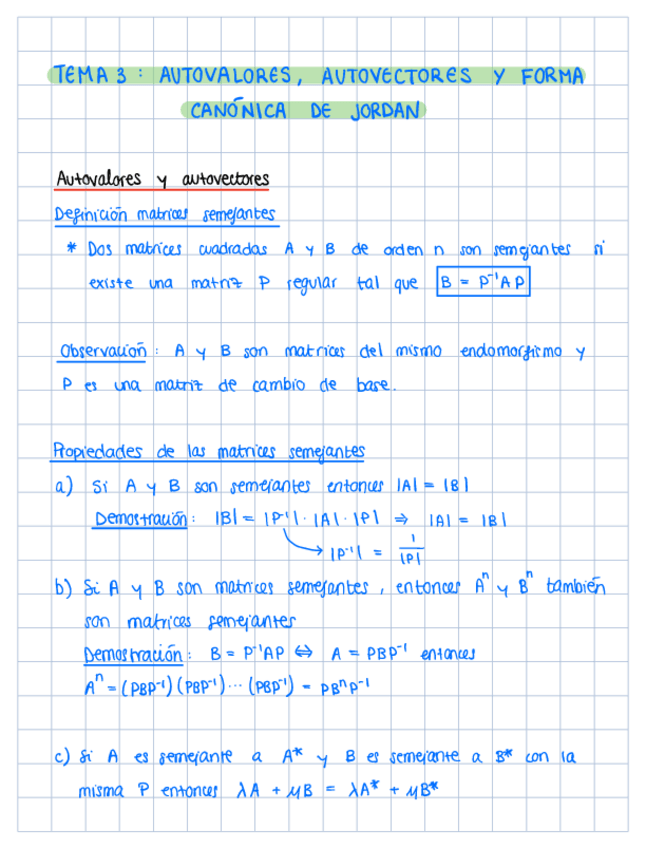 TEMA 3 : AUTOVALORES, AUTOVECTORES Y FORMA
CANÓNICA DE JORDAN
Autovalores y autovectores
Definición matrices semejantes
* Dos matrices cuadradas A y B de orden n son semejantes si
existe una matriz P regular tal que B = P⁻¹AP
Observación : A y B son matrices del mismo endomorfismo y
P es una matriz de cambio de base.
Propiedades de las matrices semejantes
a) Si A y B son semejantes entonces |A| = |B|
Demostración : |B| = |P⁻¹| · |A| · |P| ⇒ |A| = |B|
|P⁻¹| = 1/|P|
b) Si A y B son matrices semejantes, entonces Aⁿ y Bⁿ también
son matrices semejantes
Demostración : B = P⁻¹AP ⇔ A = PBP⁻¹ entonces
Aⁿ = (PBP⁻¹)(PBP⁻¹)···(PBP⁻¹) = PBⁿP⁻¹
c) Si A es semejante a A* y B es semejante a B* con la
misma P entonces λA + μB = λA* + μB*